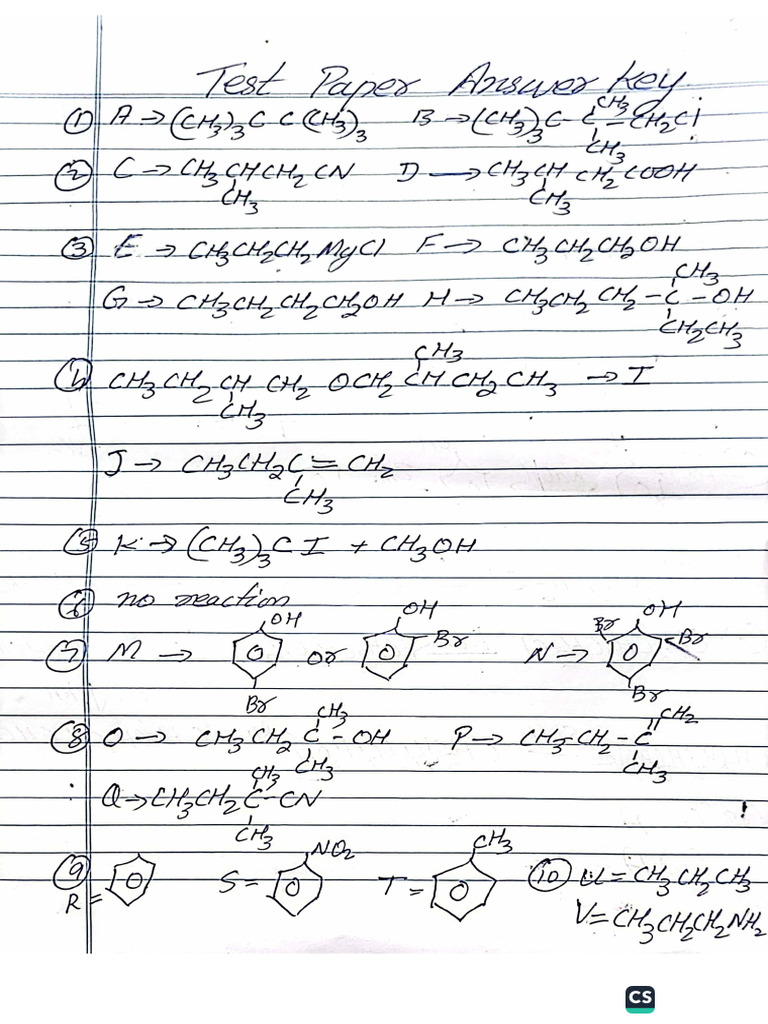 Test Paper Answer Key
① A → (CH3)3C C(CH3)3 B → (CH3)3C-C(CH3)(CH3)-CH2Cl
② C → CH3CH(CH3)CH2CN D → CH3CH(CH3)CH2COOH
③ E → CH3CH2CH2MgCl F → CH3CH2CH2OH
G → CH3CH2CH2CH2OH H → CH3CH2CH2-C(CH3)(CH2CH3)-OH
④ CH3CH2CH(CH3)CH2OCH2CH(CH3)CH2CH3 → I
J → CH3CH2C(CH3)=CH2
⑤ K → (CH3)3CI + CH3OH
⑥ no reaction
⑦ M → OH Br or OH Br N → OH Br Br Br
⑧ O → CH3CH2C(CH3)(CH3)-OH P → CH3-CH2-C(=CH2)CH3
Q → CH3CH2C(CH3)(CH3)-CN
⑨ R = S = NO2 T = CH3 ⑩ U = CH3CH2CH3
V = CH3CH2CH2NH2
CS